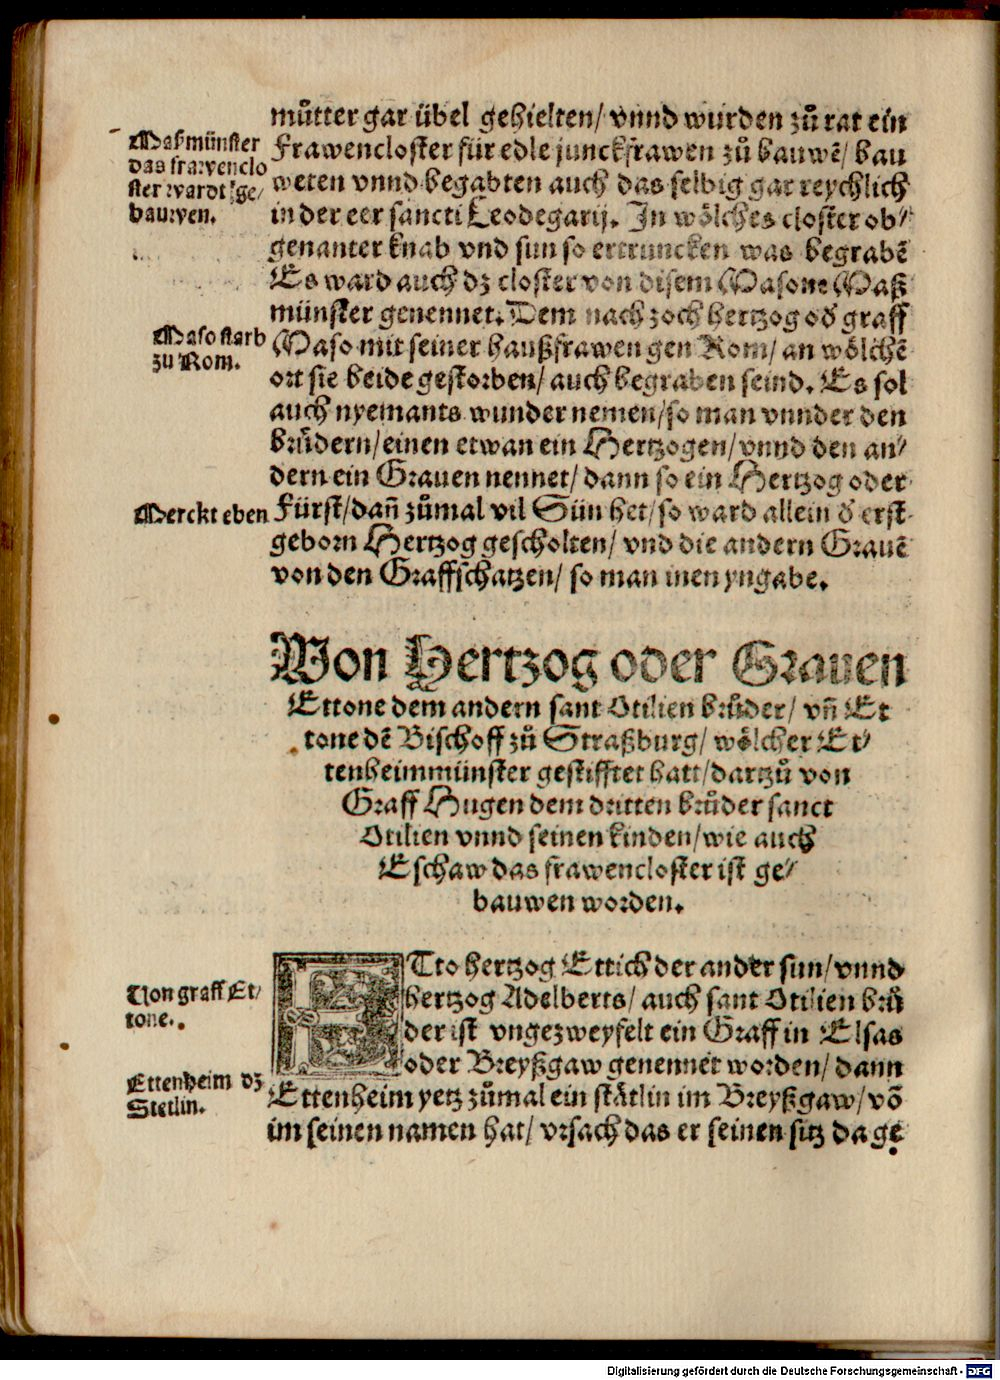 můtter gar übel gehielten/ vnnd wurden zů rat ein
Maßmünster
das frawenclo
ster wardt ge/
bauwen.
Frawencloster für edle junckfrawen zů bauwẽ/ bau
weten vnnd begabten auch das selbig gar reychlich
in der eer sancti Leodegarij. In wölches closter ob⸗
genanter knab vnd sun so ertruncken was begrabẽ
Es ward auch dz closter von disem Masone Maß
münster genennet. Dem nach zoch hertzog oď graff
Maso starb
zu Rom.
Maso mit seiner haußfrawen gen Rom/ an wölchẽ
ort sie beide gestorben/ auch begraben seind. Es sol
auch nyemants wunder nemen/ so man vnnder den
brůdern/ einen etwan ein Hertzogen/ vnnd den an⸗
dern ein Grauen nennet/ dann so ein Hertzog oder
Merckt eben
Fürst/ dañ zůmal vil Sün het/ so ward allein ď erst
geborn Hertzog gescholten/ vnd die andern Grauẽ
von den Graffschatzen/ so man inen yngabe.
Von Hertzog oder Grauen
Ettone dem andern sant Otilien brůder/ vñ Et
tone dẽ Bischoff zů Straßburg/ wölcher Et⸗
tenheimmünster gestifftet hatt/ dartzů von
Graff Hugen dem dritten brůder sanct
Otilien vnnd seinen kinden/ wie auch
Eschaw das frawencloster ist ge⸗
bauwen worden.
Von graff Et/
tone.
ETto hertzog Ettich der ander sun/ vnnd
hertzog Adelberts/ auch sant Otilien brů
der ist vngezweyfelt ein Graff in Elsas
oder Breyßgaw genennet worden/ dann
Ettenheim dz
Stetlin.
Ettenheim yetz zůmal ein stätlin im Breyßgaw/ võ
im seinen namen hat/ vrsach das er seinen sitz da ge
Digitalisierung gefördert durch die Deutsche Forschungsgemeinschaft - DFG